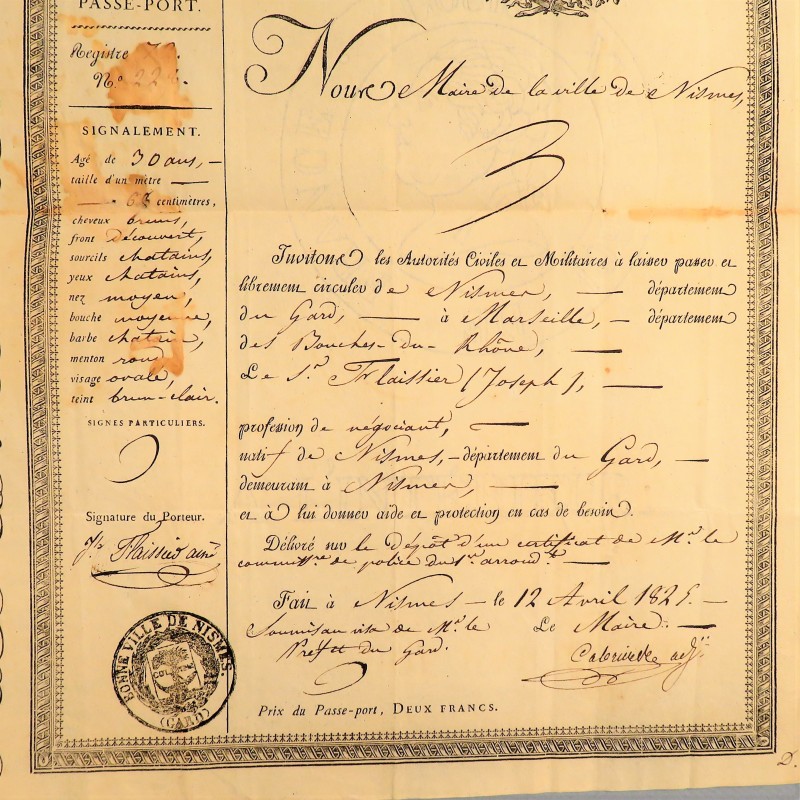 PASSE-PORT.
Registre
N.º 22
SIGNALEMENT.
Agé de 30 ans, —
taille d'un mètre —
— 68 centimètres,
cheveux bruns,
front Découvert,
sourcils chatains,
yeux chatains,
nez moyen,
bouche moyenne,
barbe chatain,
menton rond
visage ovale,
teint brun-clair.
SIGNES PARTICULIERS.
Signature du Porteur.
Flaissier ainé
BONNE VILLE DE NISMES.
(GARD)
Nous Maire de la ville de Nismes,
Invitons les Autorités Civiles et Militaires à laisser passer et
librement circuler de Nismes, — département
du Gard, — à Marseille, — département
des Bouches-du-Rhône, —
Le S.r Flaissier (Joseph), —
profession de négociant, —
natif de Nismes, — département du Gard, —
demeurant à Nismes, —
et à lui donner aide et protection en cas de besoin.
Délivré sur le dépôt d'un certificat de M.r le
commiss.re de police du 1.er arrond.t —
Fait à Nismes — le 12 Avril 1825. —
Soumis au visa de M.r le Le Maire: —
Préfet du Gard. adj.
Prix du Passe-port, DEUX FRANCS.